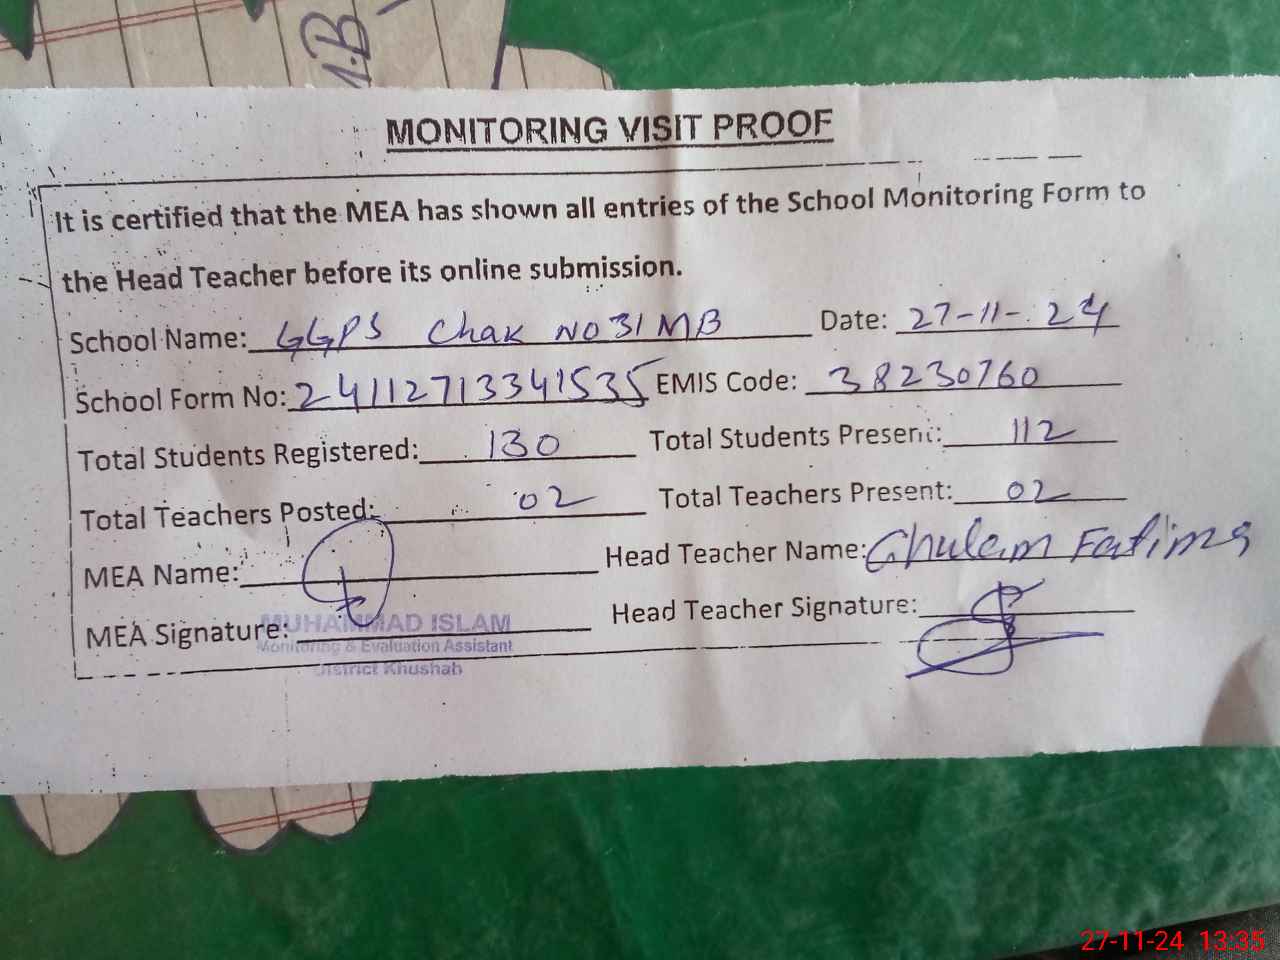 M.B
MONITORING VISIT PROOF
It is certified that the MEA has shown all entries of the School Monitoring Form to
the Head Teacher before its online submission.
School Name: GGPS Chak NO 31 MB Date: 27-11-24
School Form No: 24112713341535 EMIS Code: 38230760
Total Students Registered: 130 Total Students Present: 112
Total Teachers Posted: 02 Total Teachers Present: 02
MEA Name: Head Teacher Name: Ghulam Fatima
MEA Signature: Head Teacher Signature:
MUHAMMAD ISLAM
Monitoring & Evaluation Assistant
District Khushab
27-11-24 13:35